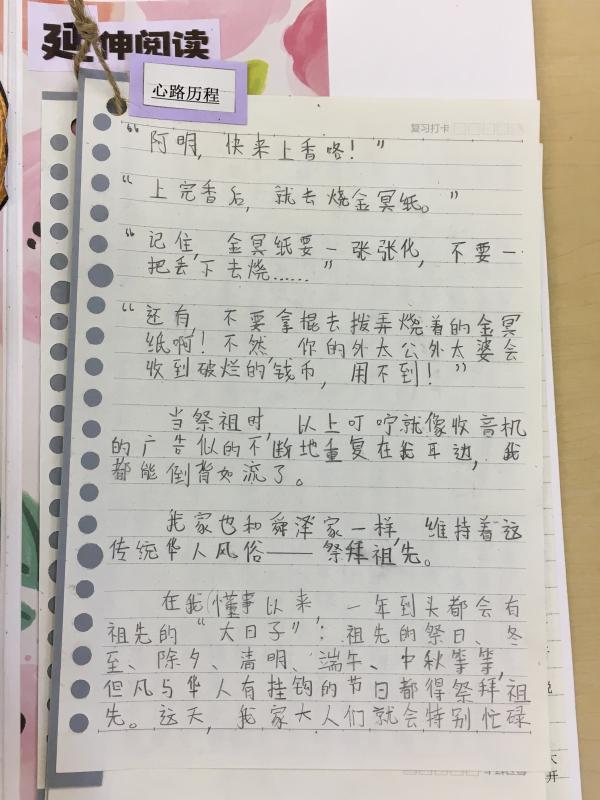 延伸阅读
心路历程
复习打卡
“阿明，快来上香咯！”
“上完香后，就去烧金冥纸。”
“记住，金冥纸要一张张化，不要一
把丢下去烧……”
“还有，不要拿棍去拨弄烧着的金冥
纸啊！不然，你的外太公外太婆会
收到破烂的钱币，用不到！”
当祭祖时，以上叮咛就像收音机
的广告似的不断地重复在我耳边，我
都能倒背如流了。
我家也和舜泽家一样，维持着这
传统华人风俗——祭拜祖先。
在我懂事以来，一年到头都会有
祖先的“大日子”：祖先的祭日、冬
至、除夕、清明、端午、中秋等等，
但凡与华人有挂钩的节日都得祭拜祖
先。这天，我家大人们就会特别忙碌